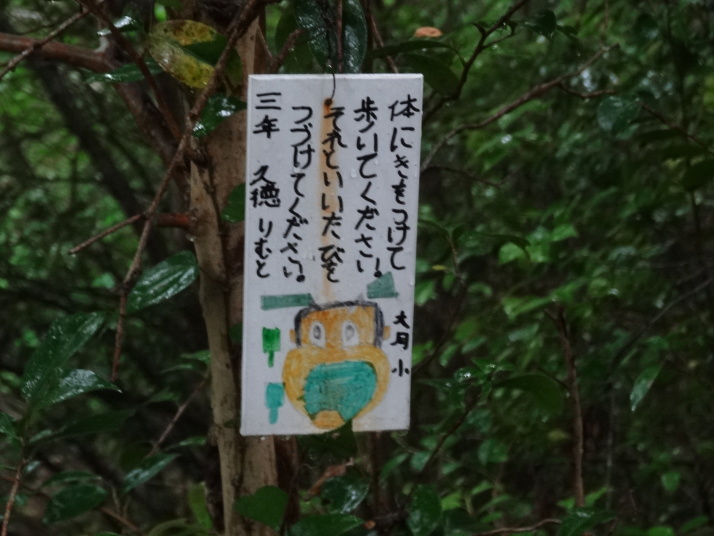 体にきをつけて
歩いてください。
それといいたびを
つづけてください。
三年 久徳 りむと
大月小